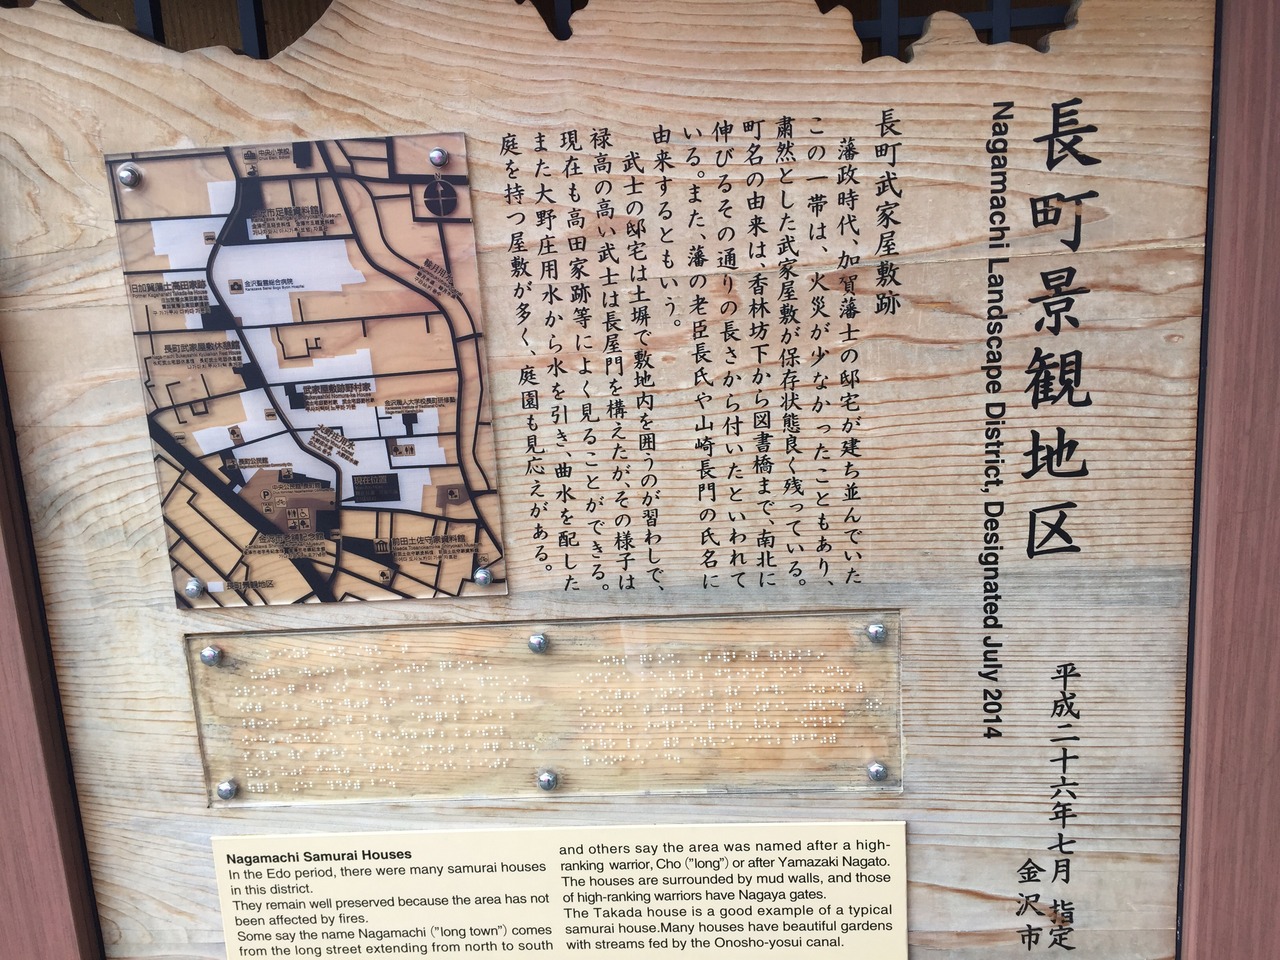 長町景観地区
Nagamachi Landscape District, Designated July 2014
平成二十六年七月 指定
金沢市
長町武家屋敷跡
藩政時代、加賀藩士の邸宅が建ち並んでいた
この一帯は、火災が少なかったこともあり、
粛然とした武家屋敷が保存状態良く残っている。
町名の由来は、香林坊下から図書橋まで、南北に
伸びるその通りの長さから付いたといわれて
いる。また、藩の老臣長氏や山崎長門の氏名に
由来するともいう。
武士の邸宅は土塀で敷地内を囲うのが習わしで、
禄高の高い武士は長屋門を構えたが、その様子は
現在も高田家跡等によく見ることができる。
また大野庄用水から水を引き、曲水を配した
庭を持つ屋敷が多く、庭園も見応えがある。
中央小学校
市足軽資料館
金沢聖霊総合病院
旧加賀藩士高田家跡
長町武家屋敷休憩館
武家屋敷跡野村家
金沢職人大学校長町研修塾
大野庄用水
長町公民館
現在位置
前田土佐守家資料館
長町景観地区
Nagamachi Samurai Houses
In the Edo period, there were many samurai houses
in this district.
They remain well preserved because the area has not
been affected by fires.
Some say the name Nagamachi ("long town") comes
from the long street extending from north to south
and others say the area was named after a high-
ranking warrior, Cho ("long") or after Yamazaki Nagato.
The houses are surrounded by mud walls, and those
of high-ranking warriors have Nagaya gates.
The Takada house is a good example of a typical
samurai house.Many houses have beautiful gardens
with streams fed by the Onosho-yosui canal.